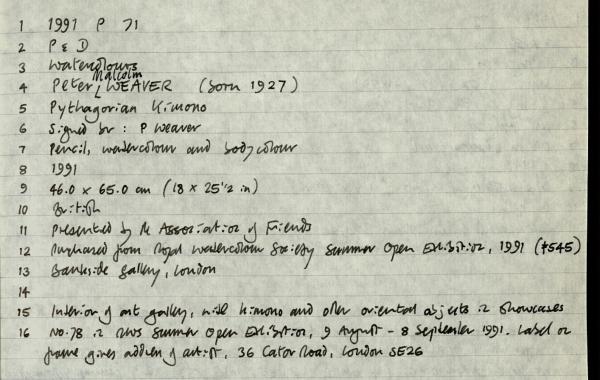 1 1991 P 71
2 P & D
3 Watercolours
4 Peter Malcolm WEAVER (born 1927)
5 Pythagorian Kimono
6 Signed br: P Weaver
7 Pencil, watercolour and bodycolour
8 1991
9 46.0 x 65.0 cm (18 x 25 1/2 in)
10 British
11 Presented by the Association of Friends
12 Purchased from Royal Watercolour Society Summer Open Exhibition, 1991 (545)
13 Bankside Gallery, London
14
15 Interior of art gallery, with kimono and other oriental objects in showcases
16 No. 78 in RWS Summer Open Exhibition, 9 August - 8 September 1991. Label on
frame gives address of artist, 36 Cator Road, London SE26